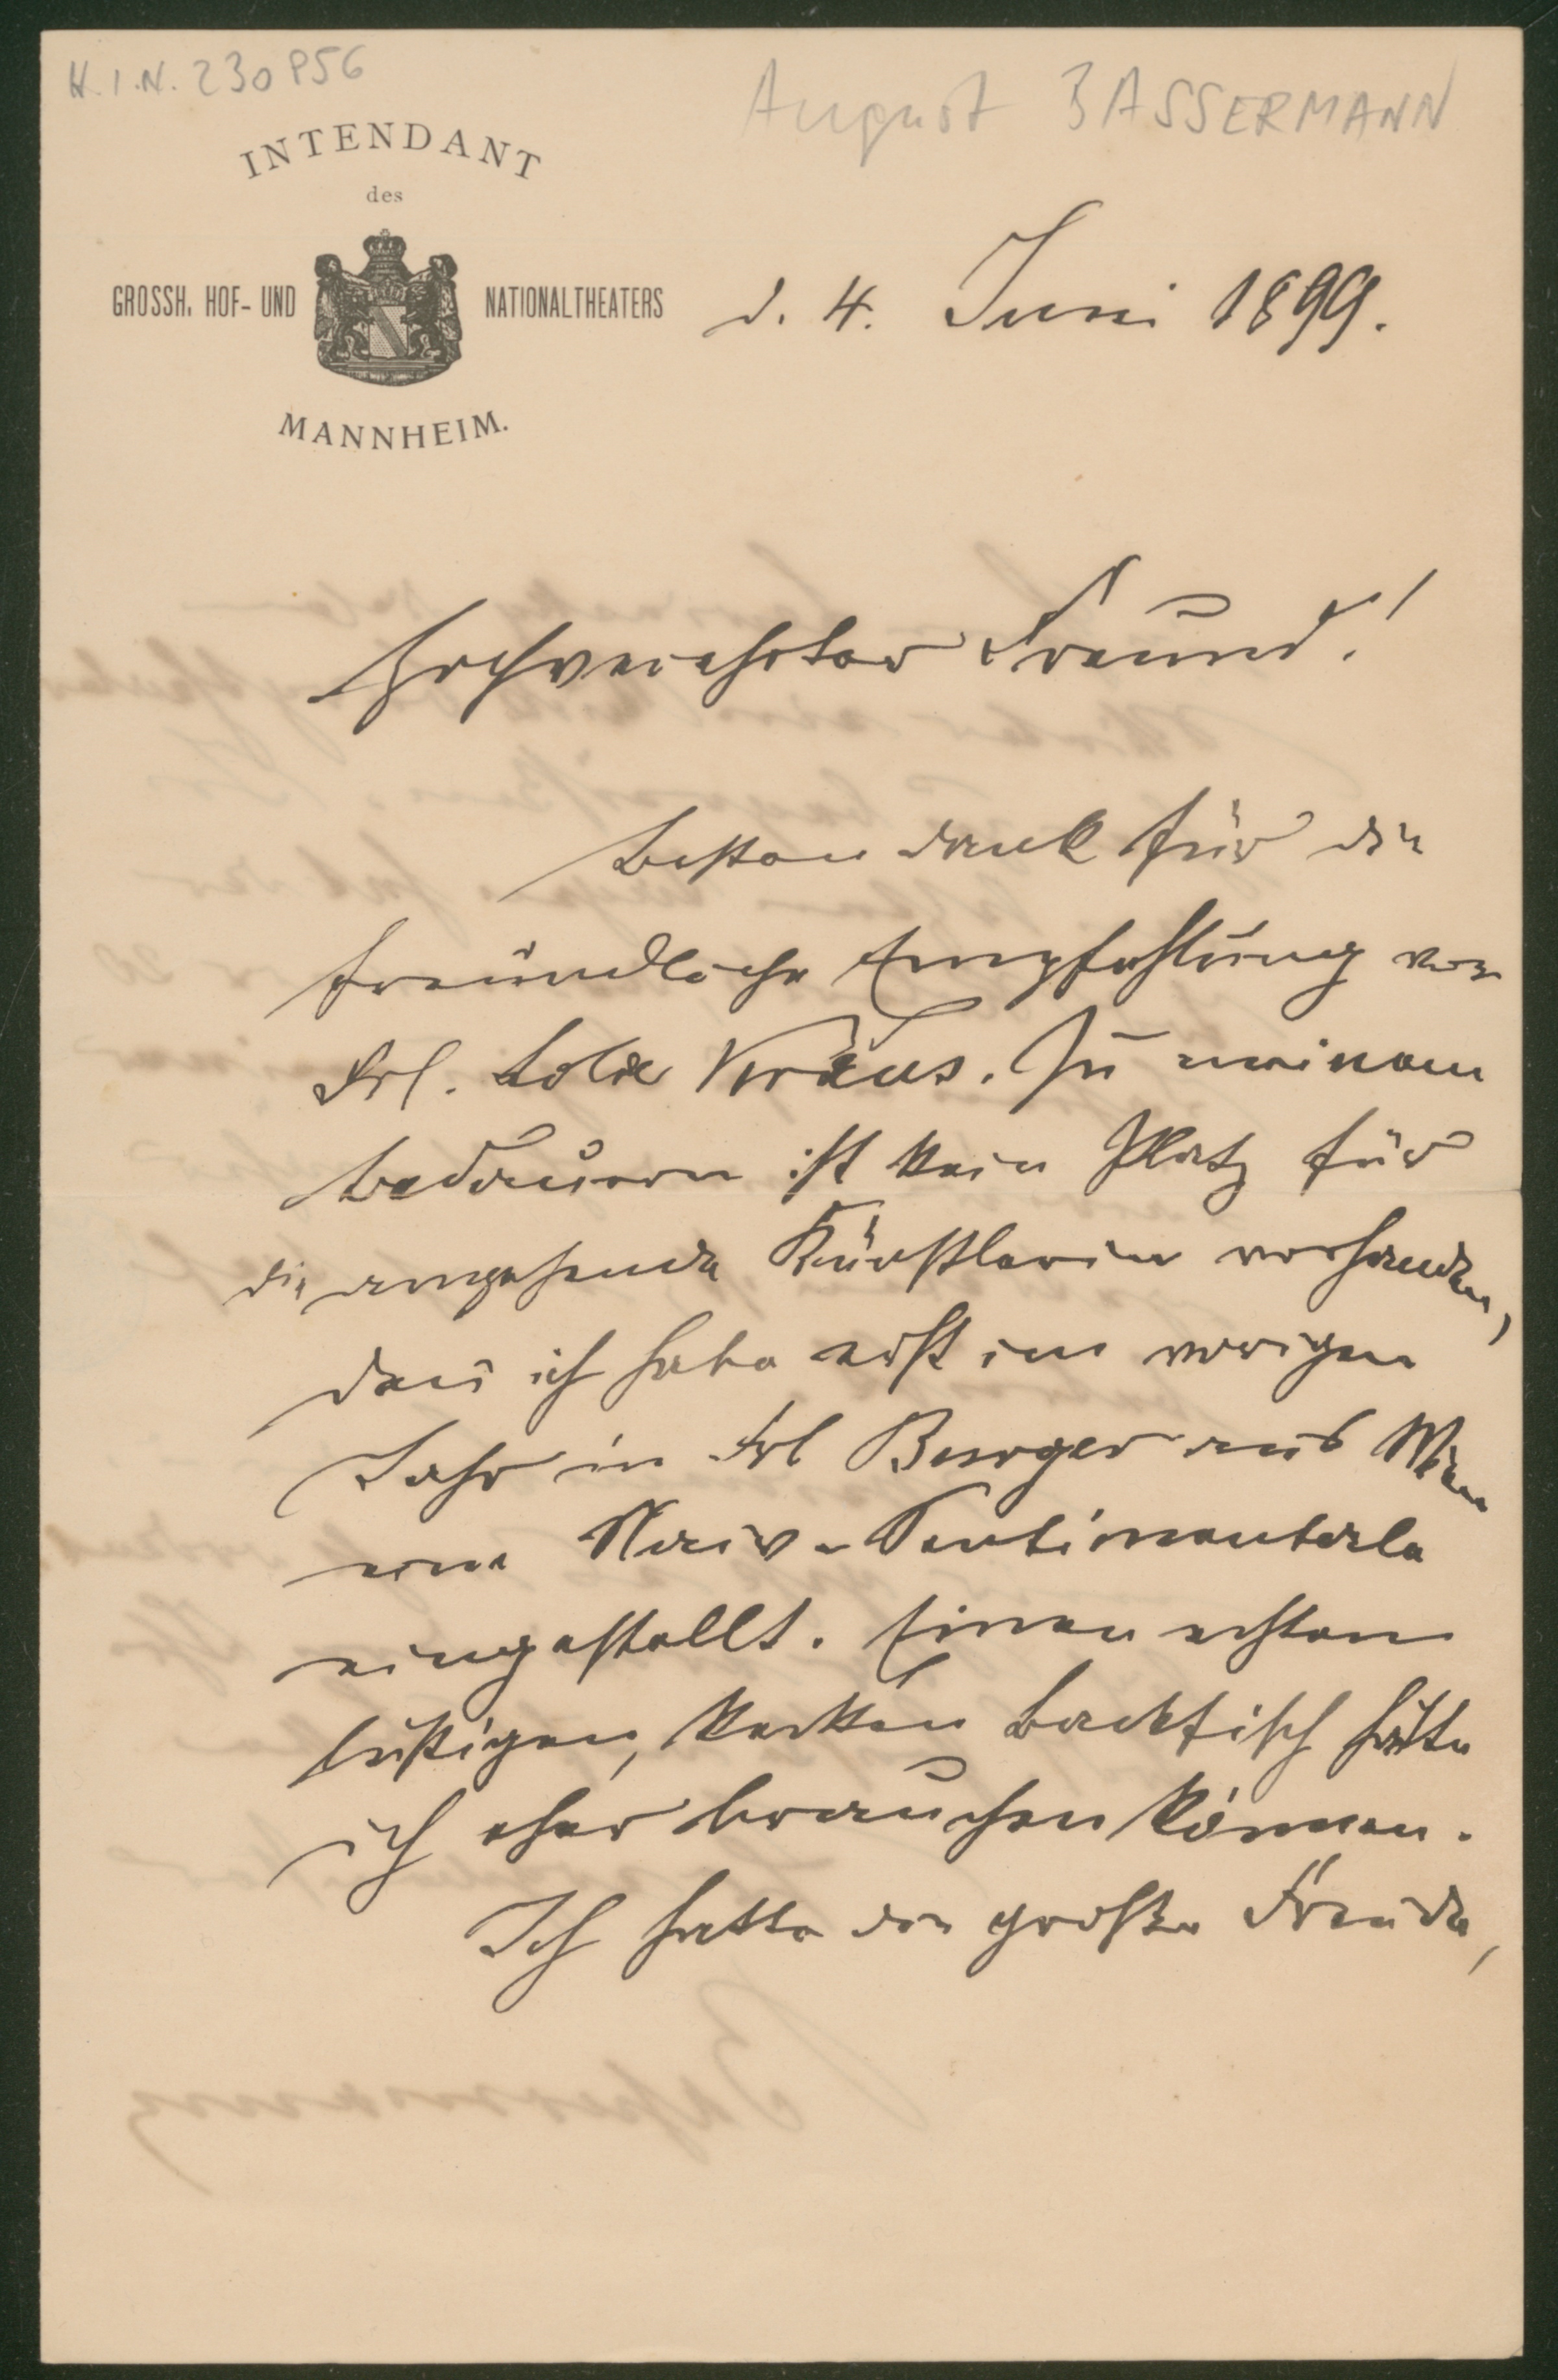 H.I.N. 230956
August BASSERMANN
INTENDANT
des
GROSSH. HOF- UND NATIONALTHEATERS
MANNHEIM.
d. 4. Juni 1899.
Hochverehrter Freund!
Besten Dank für die
freundliche Empfehlung von
Frl. Kraus. Zu meinem
Bedauern ist kein Platz für
die angehende Künstlerin vorhanden,
denn ich habe erst im vorigen
Jahr in Frl Burger aus Wien
eine Naiv-Sentimentale
eingestellt. Einen echten
lustigen, kecken Backfisch hätte
ich eher brauchen können.
Ich hatte die große Freude,